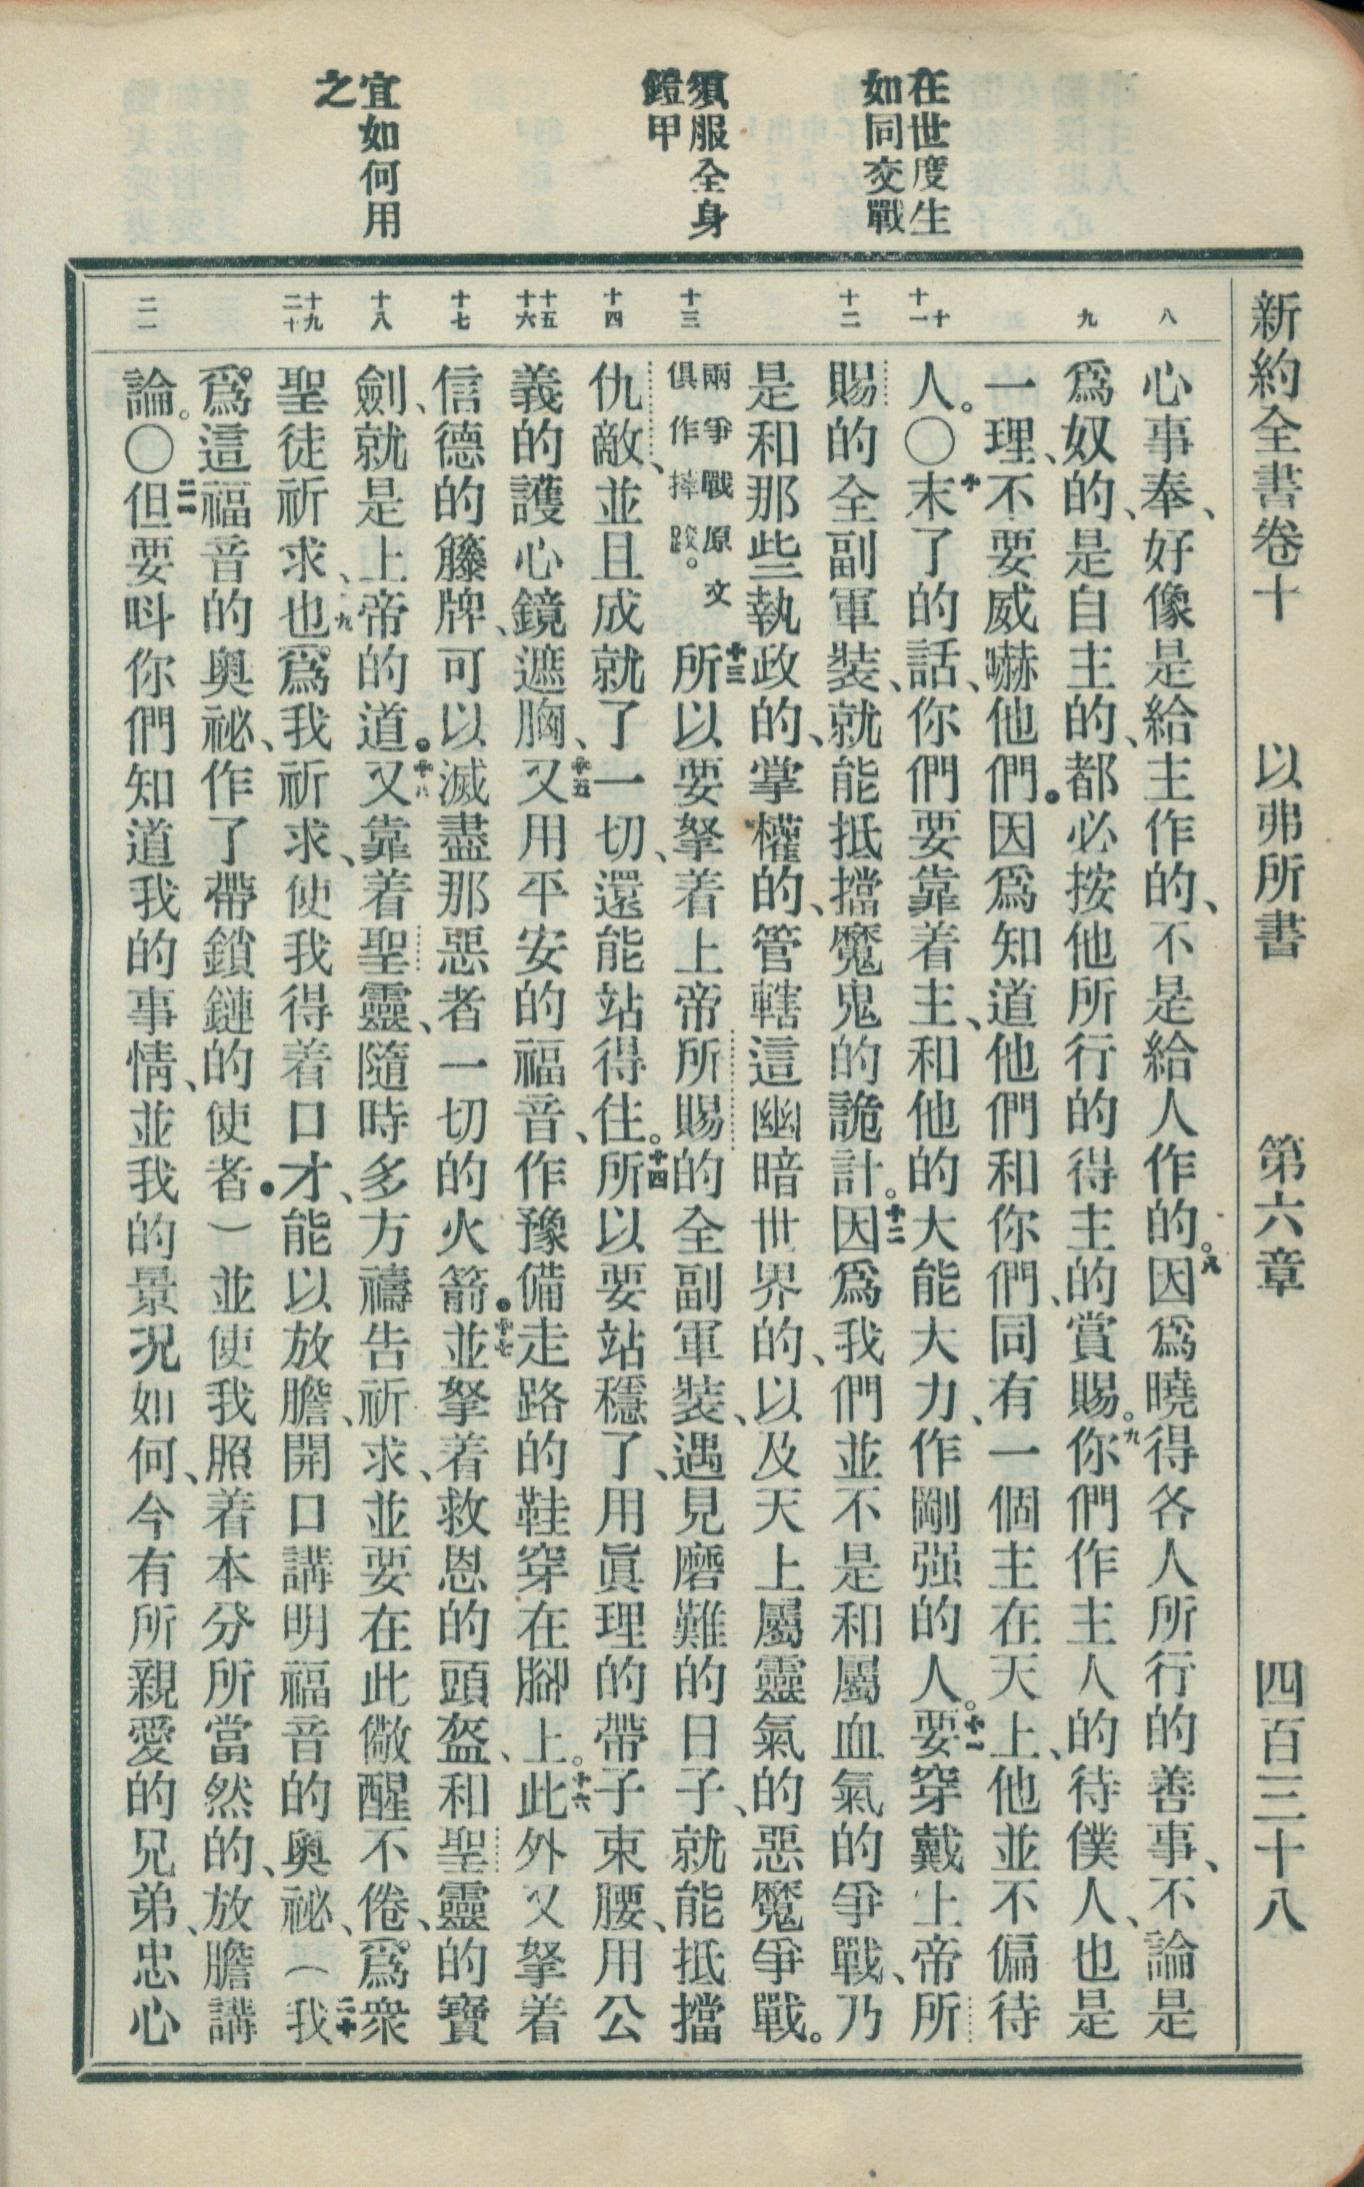 新約全書卷十　以弗所書　第六章　四百三十八
在世度生
如同交戰
須服全身
鎧甲
宜如何用
之
八
九
十
十一
十二
十三
十四
十五
十六
十七
十八
十九
二十
二一
心事奉、好像是給主作的、不是給人作的。八因爲曉得各人所行的善事、不論是
爲奴的、是自主的、都必按他所行的得主的賞賜。九你們作主人的待僕人、也是
一理、不要威嚇他們。因爲知道他們和你們、同有一個主在天上、他並不偏待
人。〇十末了的話、你們要靠着主、和他的大能大力、作剛强的人。十一要穿戴上帝所
賜的全副軍裝、就能抵擋魔鬼的詭計。十二因爲我們並不是和屬血氣的爭戰、乃
是和那些執政的、掌權的、管轄這幽暗世界的、以及天上屬靈氣的惡魔爭戰。
兩爭戰原文
俱作摔跤。
十三所以要拏着上帝所賜的全副軍裝、遇見磨難的日子、就能抵擋
仇敵、並且成就了一切、還能站得住。十四所以要站穩了、用眞理的帶子束腰、用公
義的護心鏡遮胸、十五又用平安的福音、作豫備走路的鞋穿在腳上。十六此外又拏着
信德的籐牌、可以滅盡那惡者一切的火箭。十七並拏着救恩的頭盔、和聖靈的寶
劍、就是上帝的道。十八又靠着聖靈、隨時多方禱告祈求、並要在此儆醒不倦、爲衆
聖徒祈求、十九也爲我祈求、使我得着口才、能以放膽、開口講明福音的奧祕、（二十我
爲這福音的奧祕、作了帶鎖鏈的使者）並使我照着本分所當然的、放膽講
論。〇二一但要呌你們知道我的事情、並我的景況如何、今有所親愛的兄弟、忠心